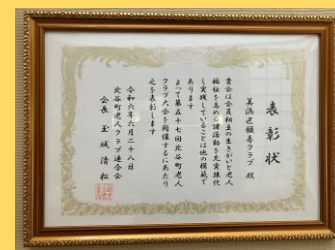 表彰状
美浜区顕寿クラブ 殿
貴会は会員相互の生きがいと老人
福祉を高める諸活動を充実強化
し実践していることは他の模範で
あります
よって第五十七回北谷町老人
クラブ大会を開催するにあたり
之を表彰します
令和六年六月二十八日
北谷町老人クラブ連合会
会長 玉城清松